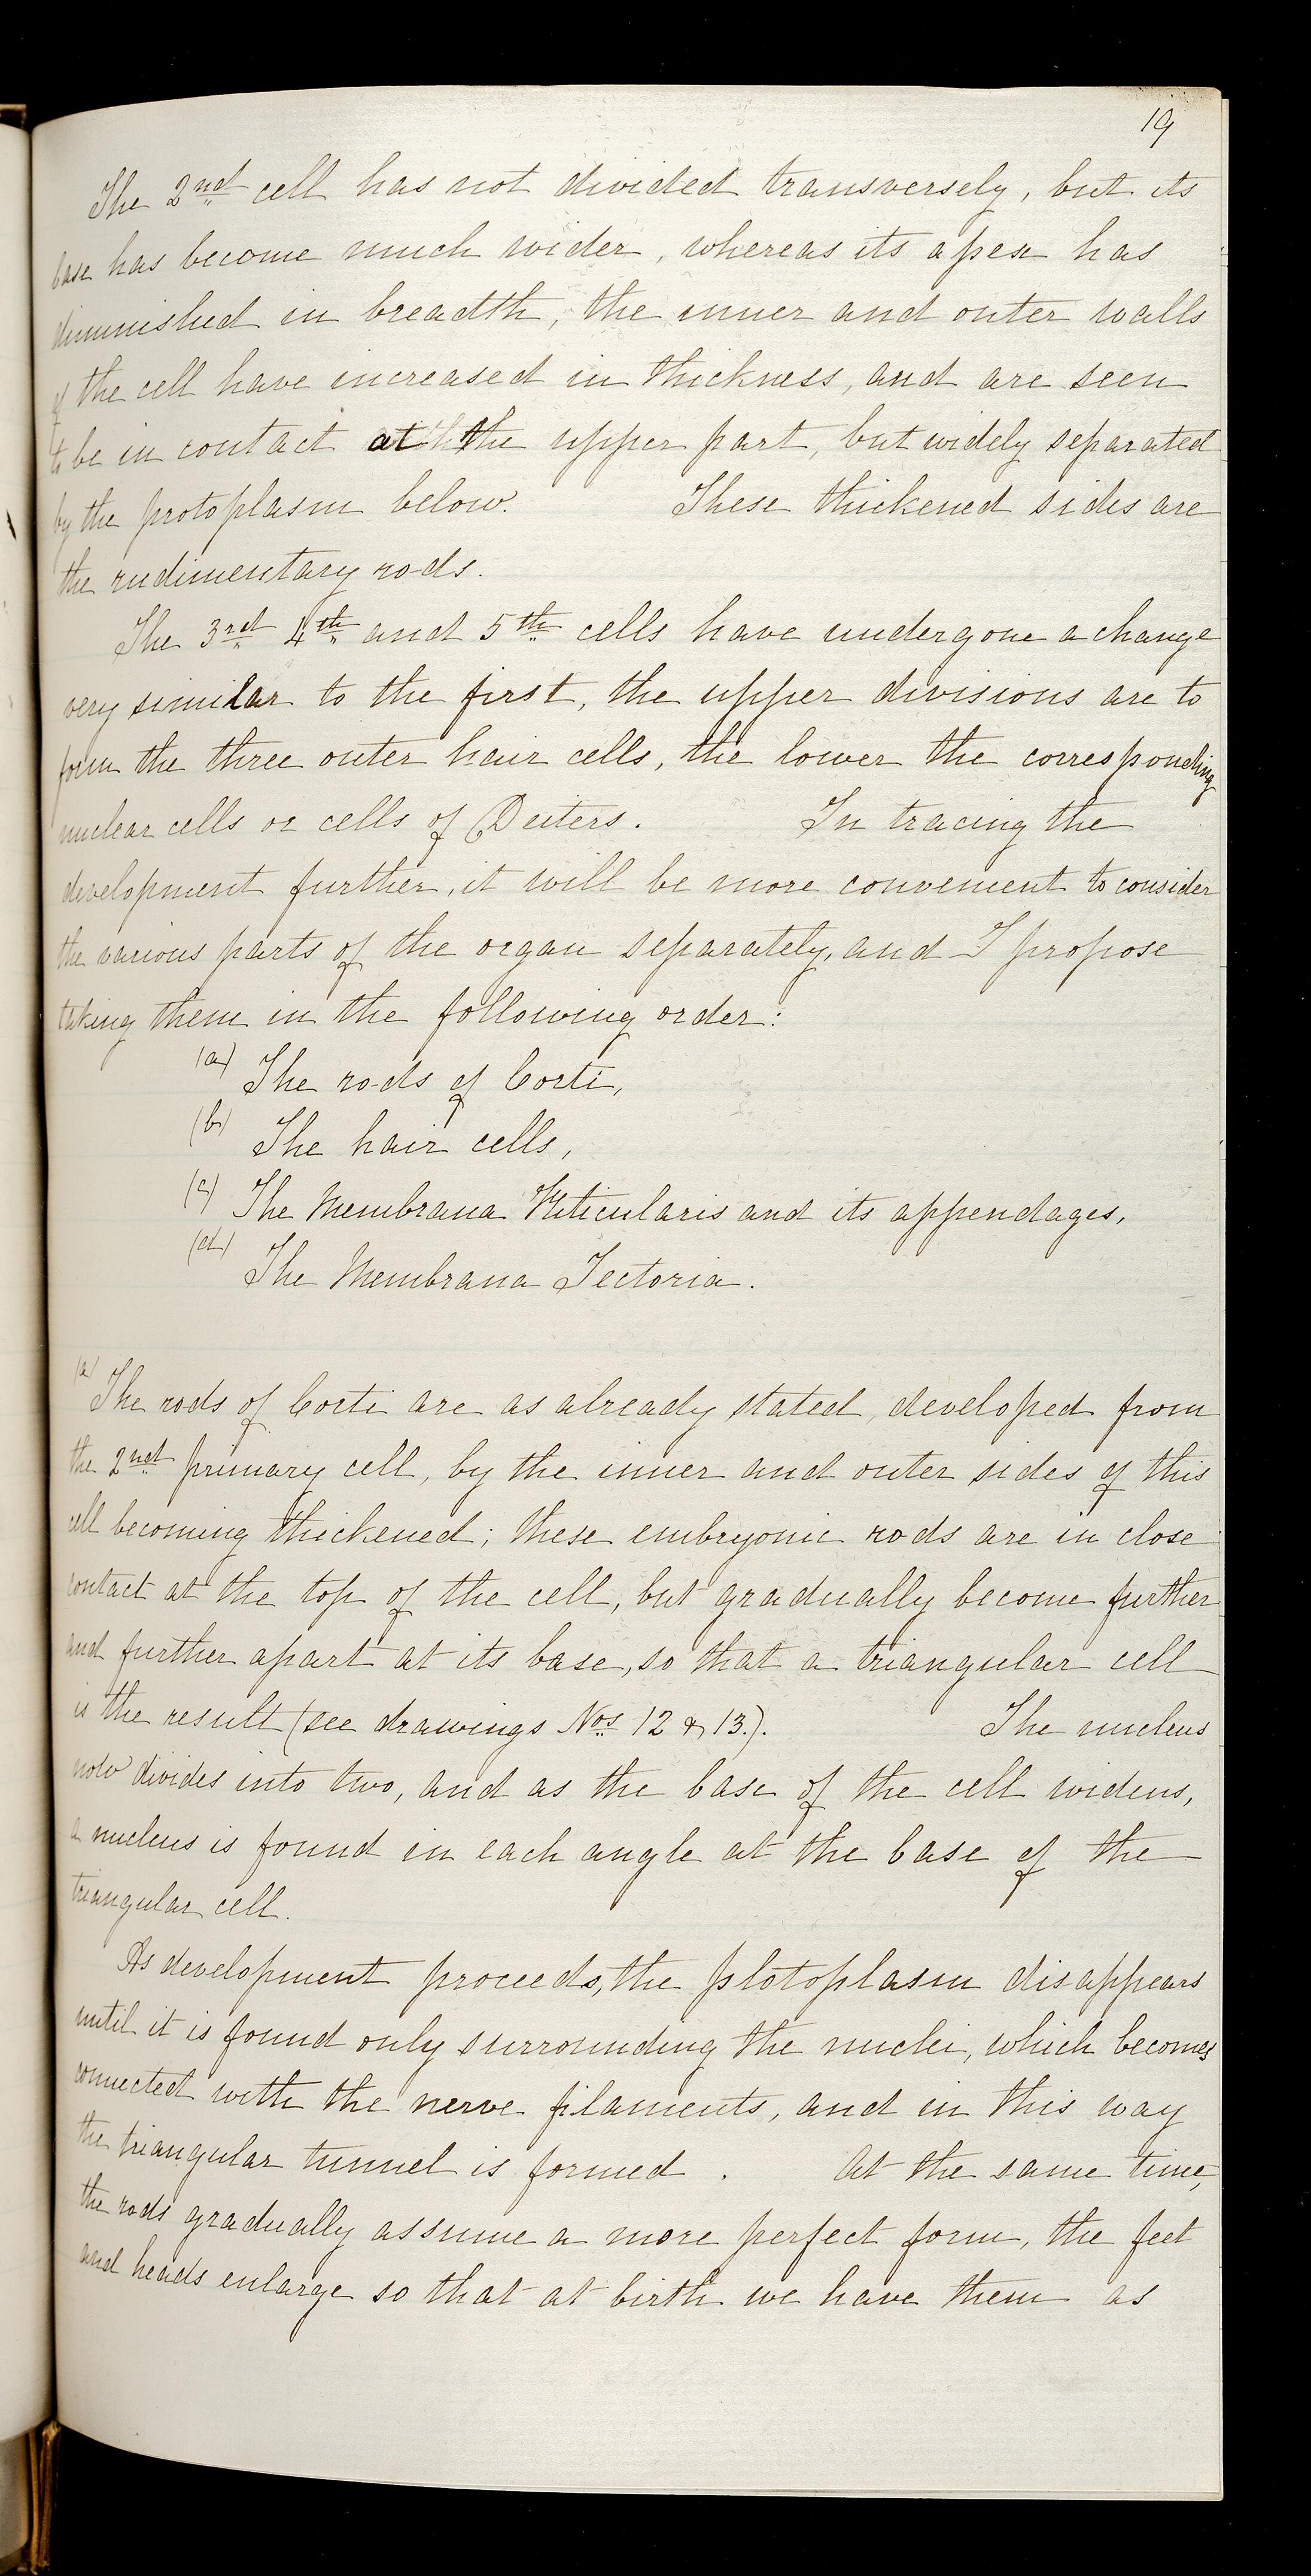 19
The 2nd cell has not divided transversely, but its
base has become much wider, whereas its apex has
diminished in breadth, the inner and outer walls
of the cell have increased in thickness, and are seen
to be in contact at the upper part, but widely separated
by the protoplasm below. These thickened sides are
the rudimentary rods.
The 3rd 4th and 5th cells have undergone a change
very similar to the first, the upper divisions are to
form the three outer hair cells, the lower the corresponding
nuclear cells or cells of Deiters. In tracing the
development further, it will be more convenient to consider
the various parts of the organ separately, and I propose
taking them in the following order:
(a) The rods of Corti,
(b) The hair cells,
(c) The Membrana Reticularis and its appendages,
(d) The Membrana Tectoria.
(a) The rods of Corti are as already stated, developed from
the 2nd primary cell, by the inner and outer sides of this
cell becoming thickened; these embryonic rods are in close
contact at the top of the cell, but gradually become further
and further apart at its base, so that a triangular cell
is the result (see drawings Nos 12 & 13.). The nucleus
now divides into two, and as the base of the cell widens,
a nucleus is found in each angle at the base of the
triangular cell.
As development proceeds, the plotoplasm disappears
until it is found only surrounding the nuclei, which becomes
connected with the nerve filaments, and in this way
the triangular tunnel is formed. At the same time,
the rods gradually assume a more perfect form, the feet
and heads enlarge so that at birth we have them as